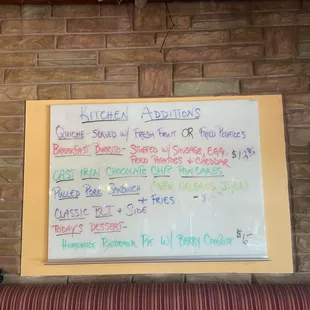 KITCHEN ADDITIONS
QUICHE - SERVED W/ FRESH FRUIT OR FRIED POTATOES
BREAKFAST BURRITO - STUFFED W/ SAUSAGE, EGG,
FRIED POTATOES & CHEDDAR
CAST IRON CHOCOLATE CHIP PANCAKES
PULLED PORK SANDWICH (NEW ORLEANS
+ FRIES
CLASSIC BLT + SIDE
TODAY'S DESSERT -
HOMEMADE BUTTERMILK PIE W/ BERRY COMPOTE $6